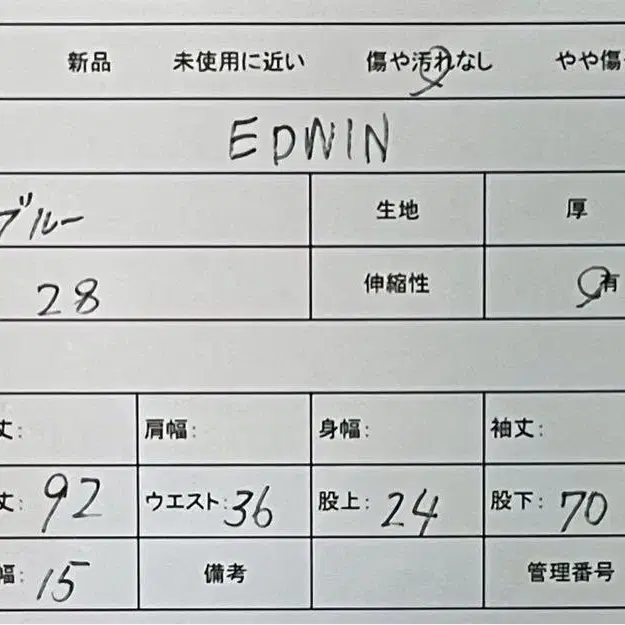 新品 未使用に近い 傷や汚れなし やや傷
EDWIN
ブルー 生地 厚
28 伸縮性 有
丈: 肩幅: 身幅: 袖丈:
丈: 92 ウエスト: 36 股上: 24 股下: 70
幅: 15 備考 管理番号